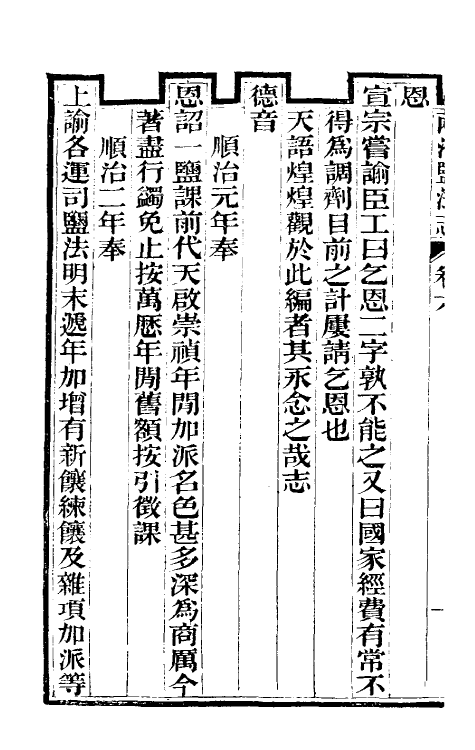 恩
宣宗嘗諭臣工曰乞恩二字孰不能之又曰國家經費有常不
得為調劑目前之計屢請乞恩也
天語煌煌觀於此編者其永念之哉志
德音
順治元年奉
恩詔一鹽課前代天啟崇禎年閒加派名色甚多深為商厲今
著盡行蠲免止按萬厯年閒舊額按引徵課
順治二年奉
上諭各運司鹽法明末遞年加增有新饟練饟及雜項加派等